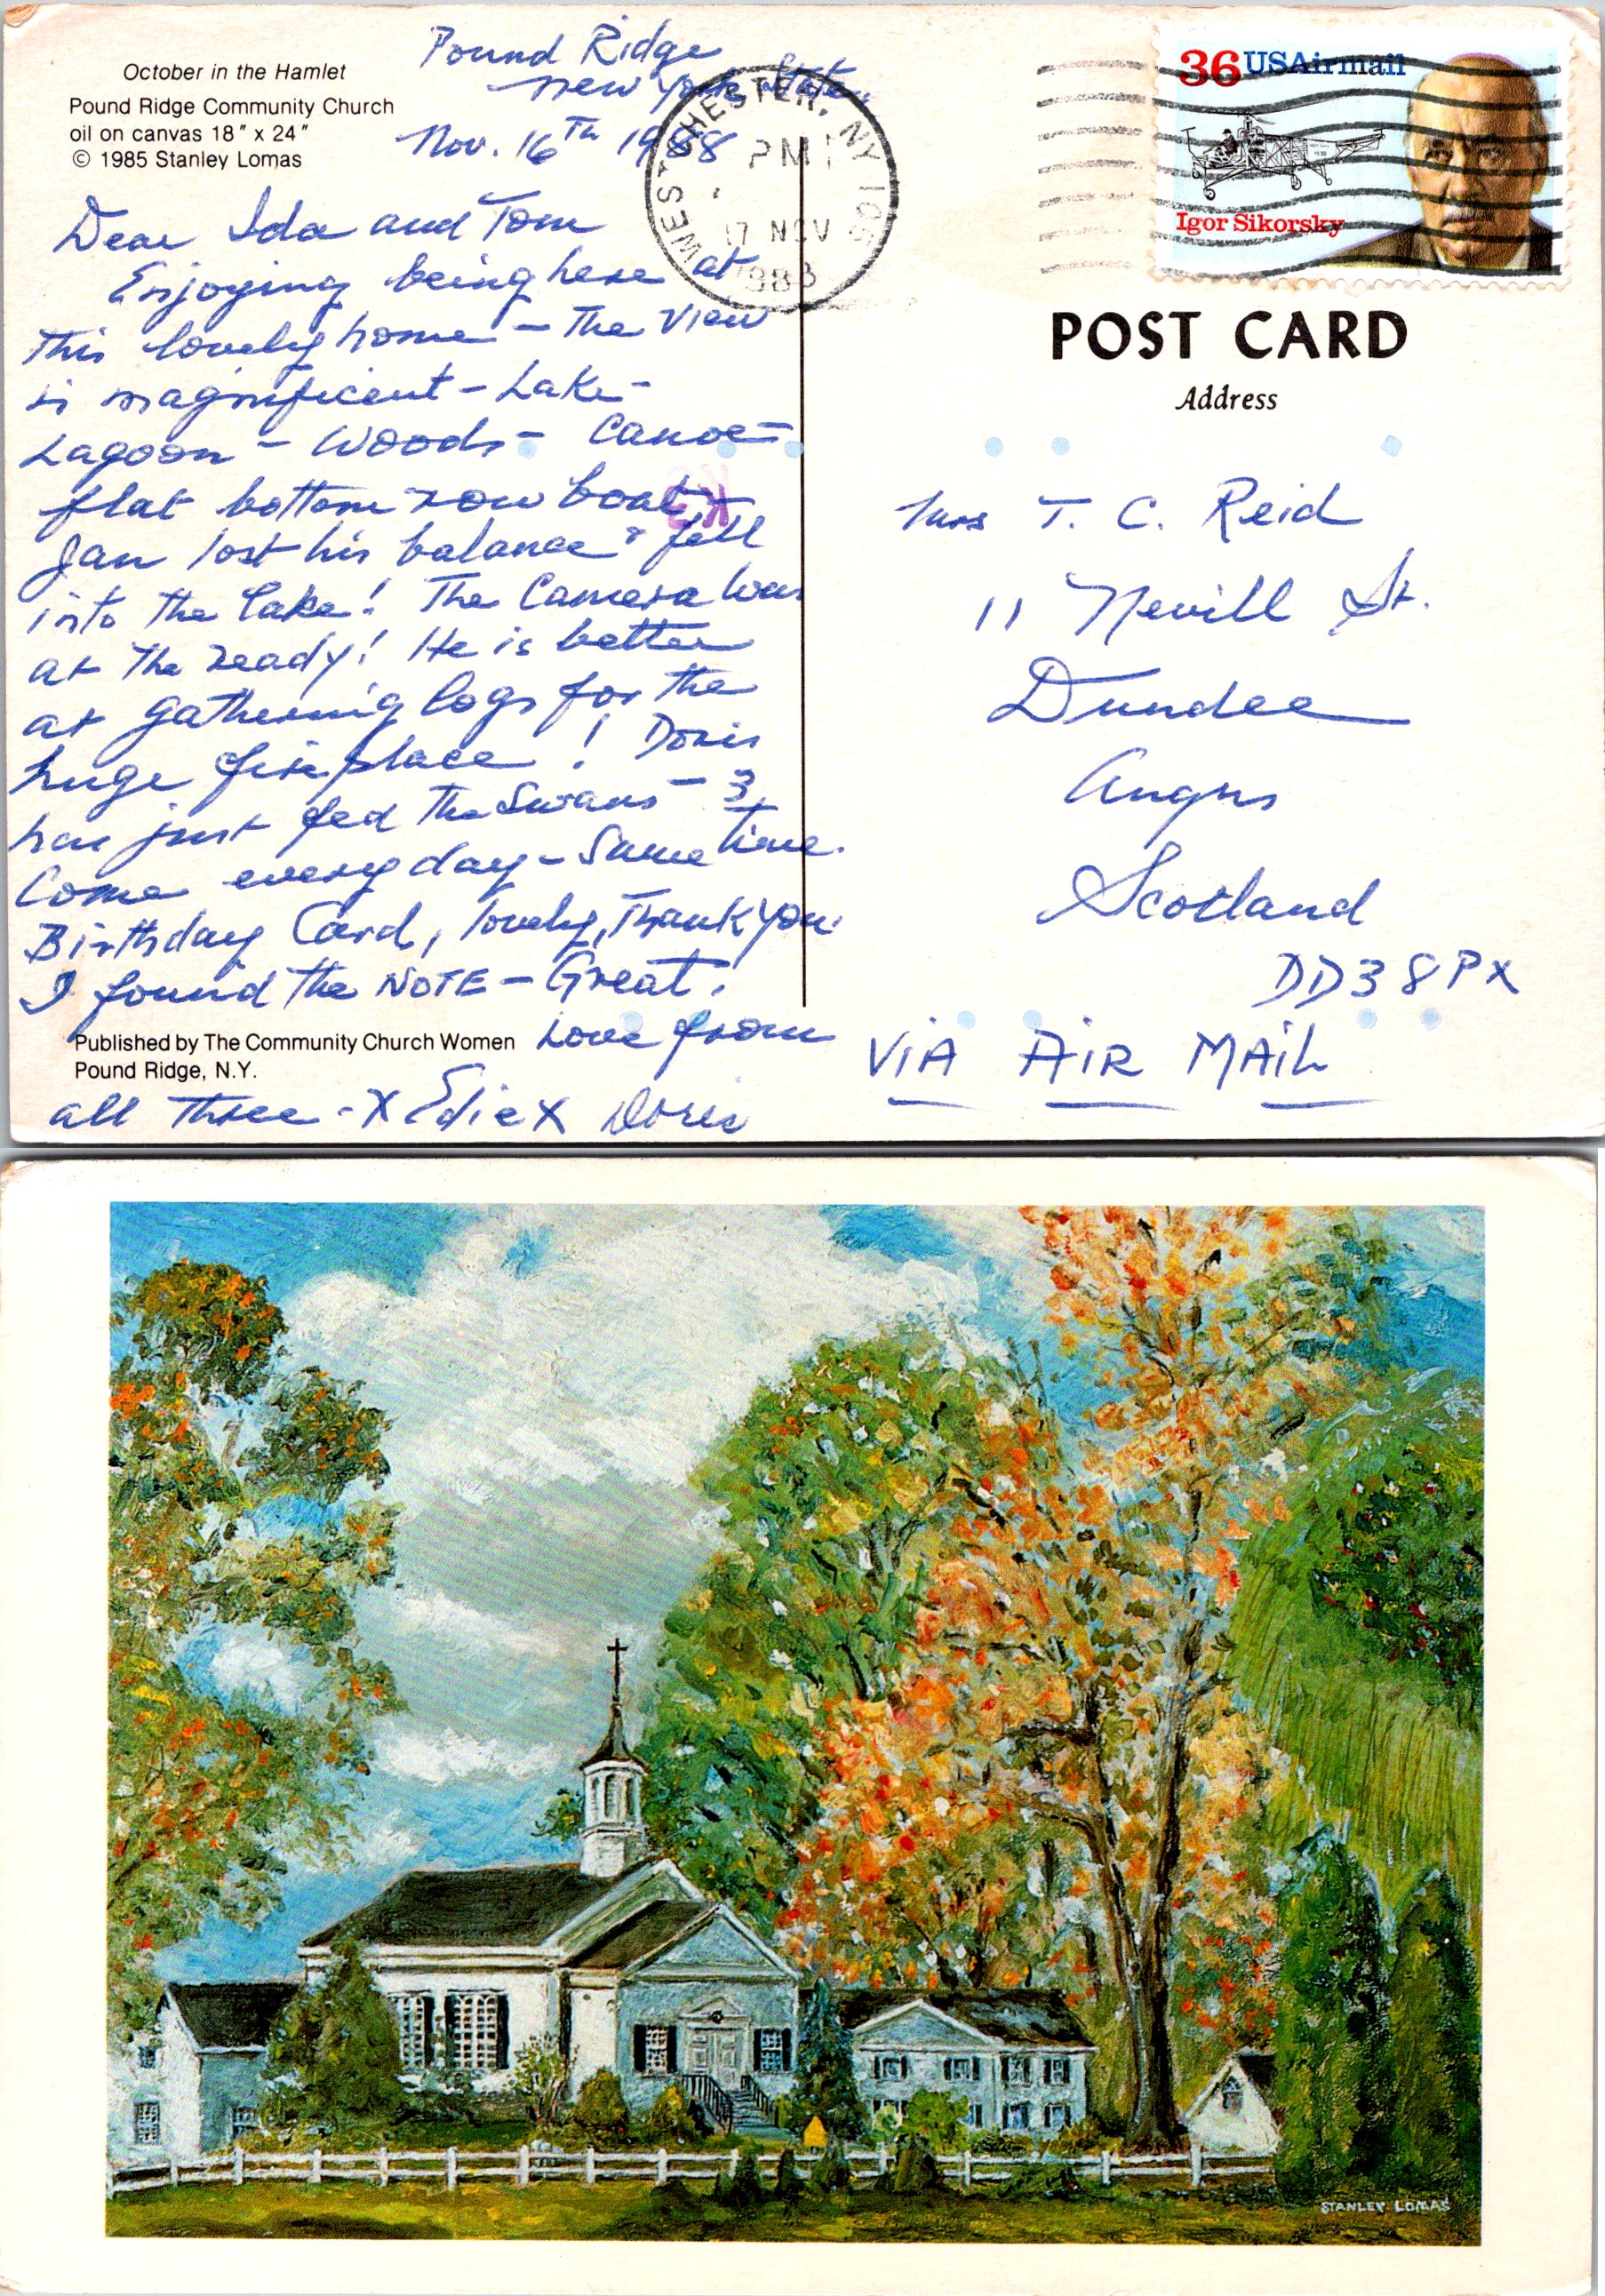 October in the Hamlet
Pound Ridge Community Church
oil on canvas 18" x 24"
© 1985 Stanley Lomas
Pound Ridge
New York State
Nov. 16th 1988
Dear Ida and Tom
Enjoying being here at
this lovely home - The View
is magnificent - Lake -
Lagoon - Woods - Canoe -
flat bottom row boat,
Jan lost his balance & fell
into the lake! The Camera was
at the ready! He is better
at gathering logs for the
huge fireplace! Doris
has just fed the Swans - 3
Come every day - Same time.
Birthday Card, lovely, Thank you.
I found the NOTE - Great!
Love from
all three - X Edie X Doris
Published by The Community Church Women
Pound Ridge, N.Y.
WESTCHESTER, NY
PM
17 NOV
1988
36 USAirmail
Igor Sikorsky
POST CARD
Address
Mrs T. C. Reid
11 Nevill St.
Dundee
Angus
Scotland
DD3 8PX
VIA AIR MAIL
STANLEY LOMAS